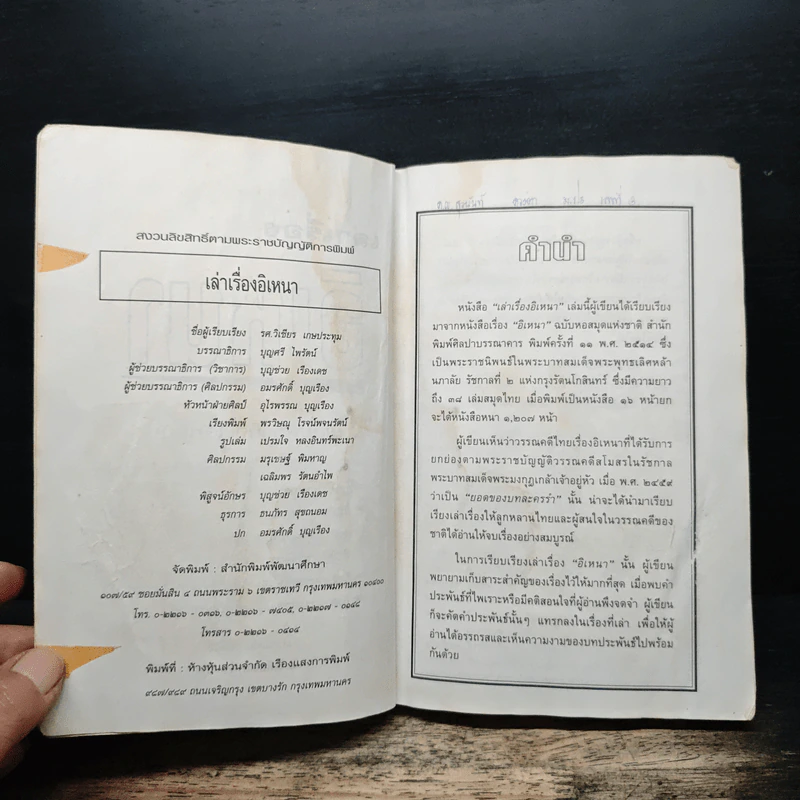 สงวนลิขสิทธิ์ตามพระราชบัญญัติการพิมพ์
เล่าเรื่องอิเหนา
ชื่อผู้เรียบเรียง รศ.วิเชียร เกษประทุม
บรรณาธิการ บุญศรี ไพรัตน์
ผู้ช่วยบรรณาธิการ (วิชาการ) บุญช่วย เรืองเดช
ผู้ช่วยบรรณาธิการ (ศิลปกรรม) อมรศักดิ์ บุญเรือง
หัวหน้าฝ่ายศิลป์ อุไรพรรณ บุญเรือง
เรียงพิมพ์ พรวิษณุ โรจน์พจนรัตน์
รูปเล่ม เปรมใจ หลงอินทร์พะเนา
ศิลปกรรม มรุเชษฐ์ พิมหาญ
เฉลิมพร รัตนอำไพ
พิสูจน์อักษร บุญช่วย เรืองเดช
ธุรการ ธนภัทร สุขถนอม
ปก อมรศักดิ์ บุญเรือง
จัดพิมพ์ : สำนักพิมพ์พัฒนาศึกษา
๑๐๗/๕๙ ซอยมั่นสิน ๔ ถนนพระราม ๖ เขตราชเทวี กรุงเทพมหานคร ๑๐๔๐๐
โทร. ๐-๒๒๑๖ - ๐๓๐๖, ๐-๒๒๑๖ - ๗๔๐๕, ๐-๒๒๑๗ - ๐๑๔๘
โทรสาร ๐-๒๒๑๖ - ๐๔๑๔
พิมพ์ที่ : ห้างหุ้นส่วนจำกัด เรืองแสงการพิมพ์
๙๘๗/๙๘๙ ถนนเจริญกรุง เขตบางรัก กรุงเทพมหานคร
คำนำ
หนังสือ "เล่าเรื่องอิเหนา" เล่มนี้ผู้เขียนได้เรียบเรียง
มาจากหนังสือเรื่อง "อิเหนา" ฉบับหอสมุดแห่งชาติ สำนัก
พิมพ์ศิลปาบรรณาคาร พิมพ์ครั้งที่ ๑๑ พ.ศ. ๒๕๑๔ ซึ่ง
เป็นพระราชนิพนธ์ในพระบาทสมเด็จพระพุทธเลิศหล้า
นภาลัย รัชกาลที่ ๒ แห่งกรุงรัตนโกสินทร์ ซึ่งมีความยาว
ถึง ๓๘ เล่มสมุดไทย เมื่อพิมพ์เป็นหนังสือ ๑๖ หน้ายก
จะได้หนังสือหนา ๑,๒๐๗ หน้า
ผู้เขียนเห็นว่าวรรณคดีไทยเรื่องอิเหนาที่ได้รับการ
ยกย่องตามพระราชบัญญัติวรรณคดีสโมสรในรัชกาล
พระบาทสมเด็จพระมงกุฎเกล้าเจ้าอยู่หัว เมื่อ พ.ศ. ๒๔๕๙
ว่าเป็น "ยอดของบทละครรำ" นั้น น่าจะได้นำมาเรียบ
เรียงเล่าเรื่องให้ลูกหลานไทยและผู้สนใจในวรรณคดีของ
ชาติได้อ่านให้จบเรื่องอย่างสมบูรณ์
ในการเรียบเรียงเล่าเรื่อง "อิเหนา" นั้น ผู้เขียน
พยายามเก็บสาระสำคัญของเรื่องไว้ให้มากที่สุด เมื่อพบคำ
ประพันธ์ที่ไพเราะหรือมีคติสอนใจที่ผู้อ่านพึงจดจำ ผู้เขียน
ก็จะคัดคำประพันธ์นั้นๆ แทรกลงในเรื่องที่เล่า เพื่อให้ผู้
อ่านได้อรรถรสและเห็นความงามของบทประพันธ์ไปพร้อม
กันด้วย